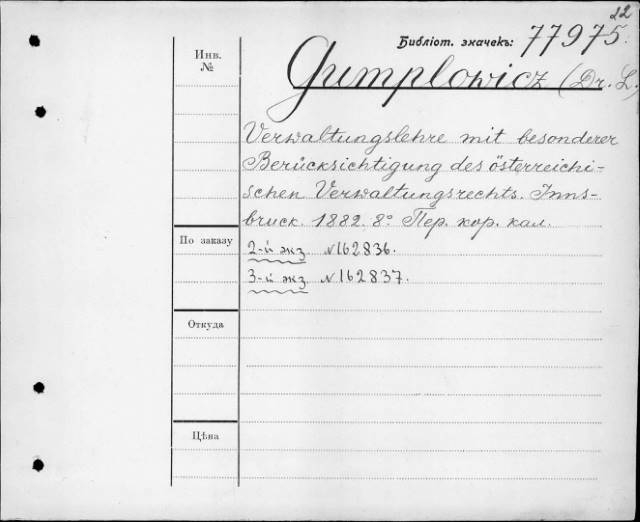 22
Библіот. значекъ: 77975.
Инв.
№
Gumplowicz (Dr. L.)
Verwaltungslehre mit besonderer
Berücksichtigung des österreichi-
schen Verwaltungsrechts. Inns-
bruck. 1882. 8° Пер. кор. кал.
По заказу
2-й экз. N 162836.
3-й экз. N 162837.
Откуда
Цѣна